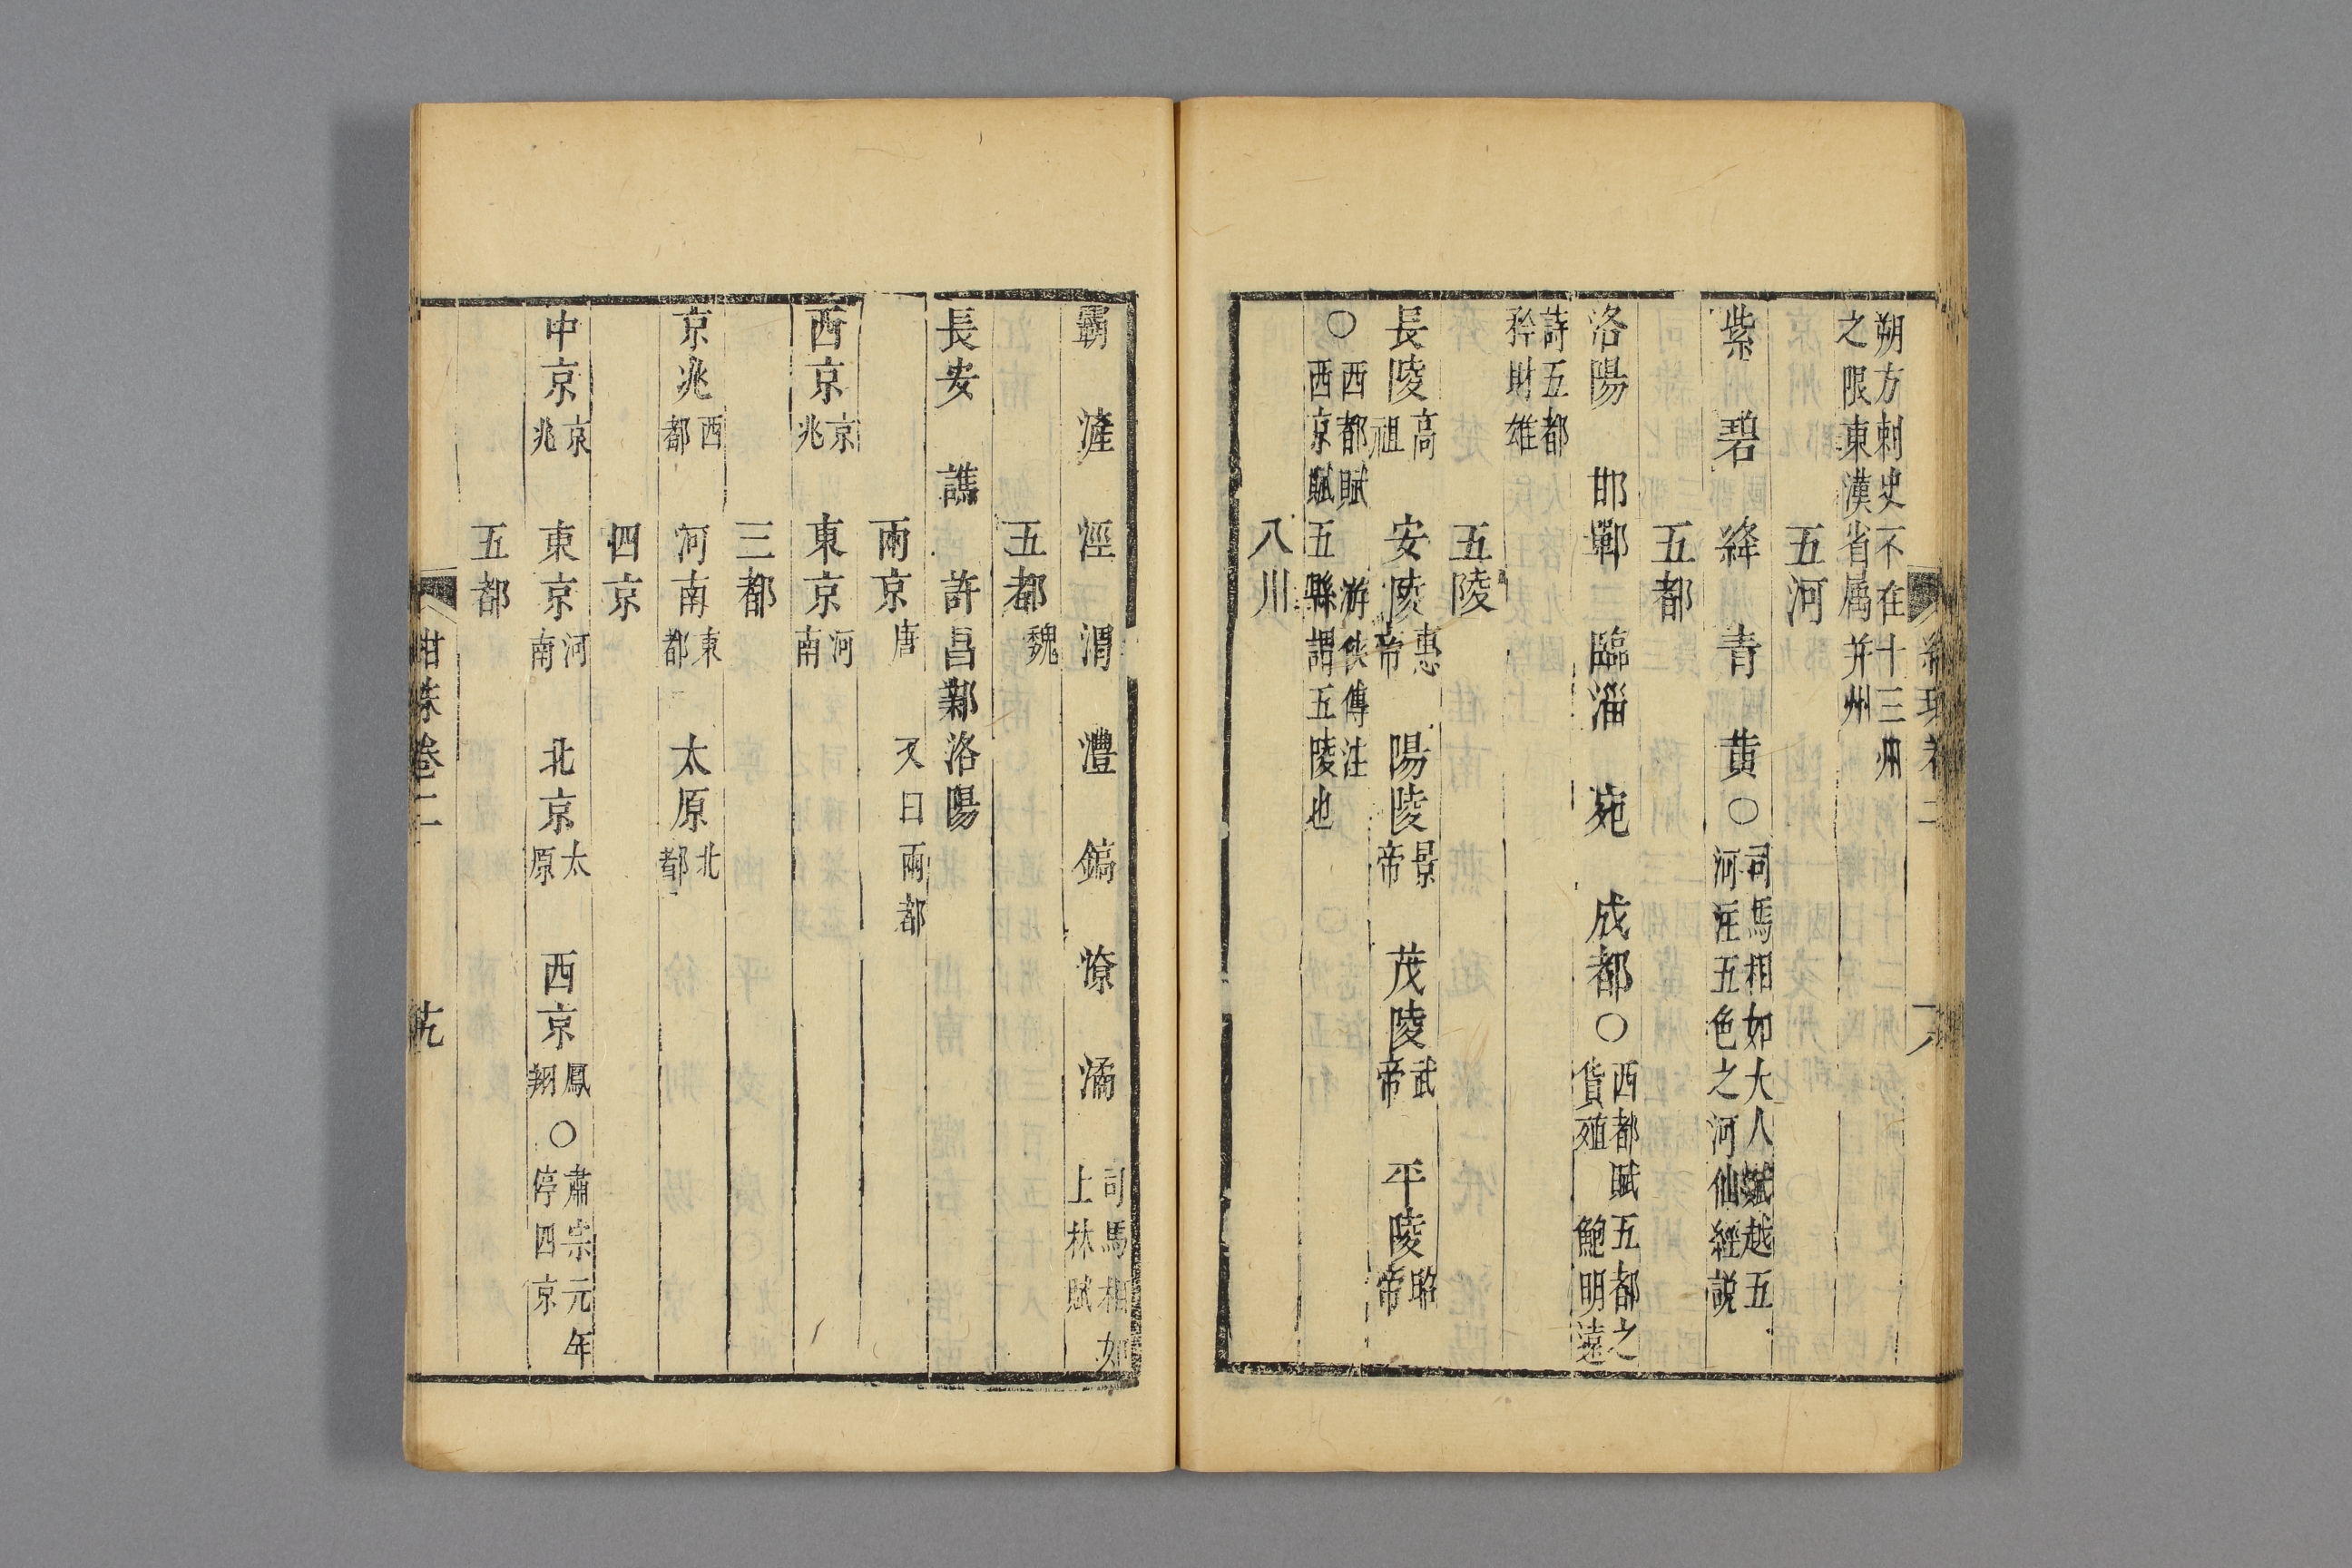 朔方刺史不在十三州
之限東漢省属并州
五河
紫 碧 絳 青 黄○司馬相如大人賦越五
河注五色之河仙經説
五都
洛陽 邯鄲 臨淄 宛 成都○西都賦五都之
貨殖 鮑明遠
詩五都
矜財雄
五陵
長陵高祖 安陵惠帝 陽陵景帝 茂陵武帝 平陵昭帝
○西都賦 游俠傳注
西京賦五縣謂五陵也
八川
霸 滻 涇 渭 澧 鎬 潦 潏 司馬相如
上林賦
五都魏
長安 譙 許昌 鄴 洛陽
兩京唐 又曰兩都
西京京兆 東京河南
三都
京兆西都 河南東都 太原北都
四京
中京京兆 東京河南 北京太原 西京鳳翔○肅宗元年
停四京
五都
紺珠卷二 十九